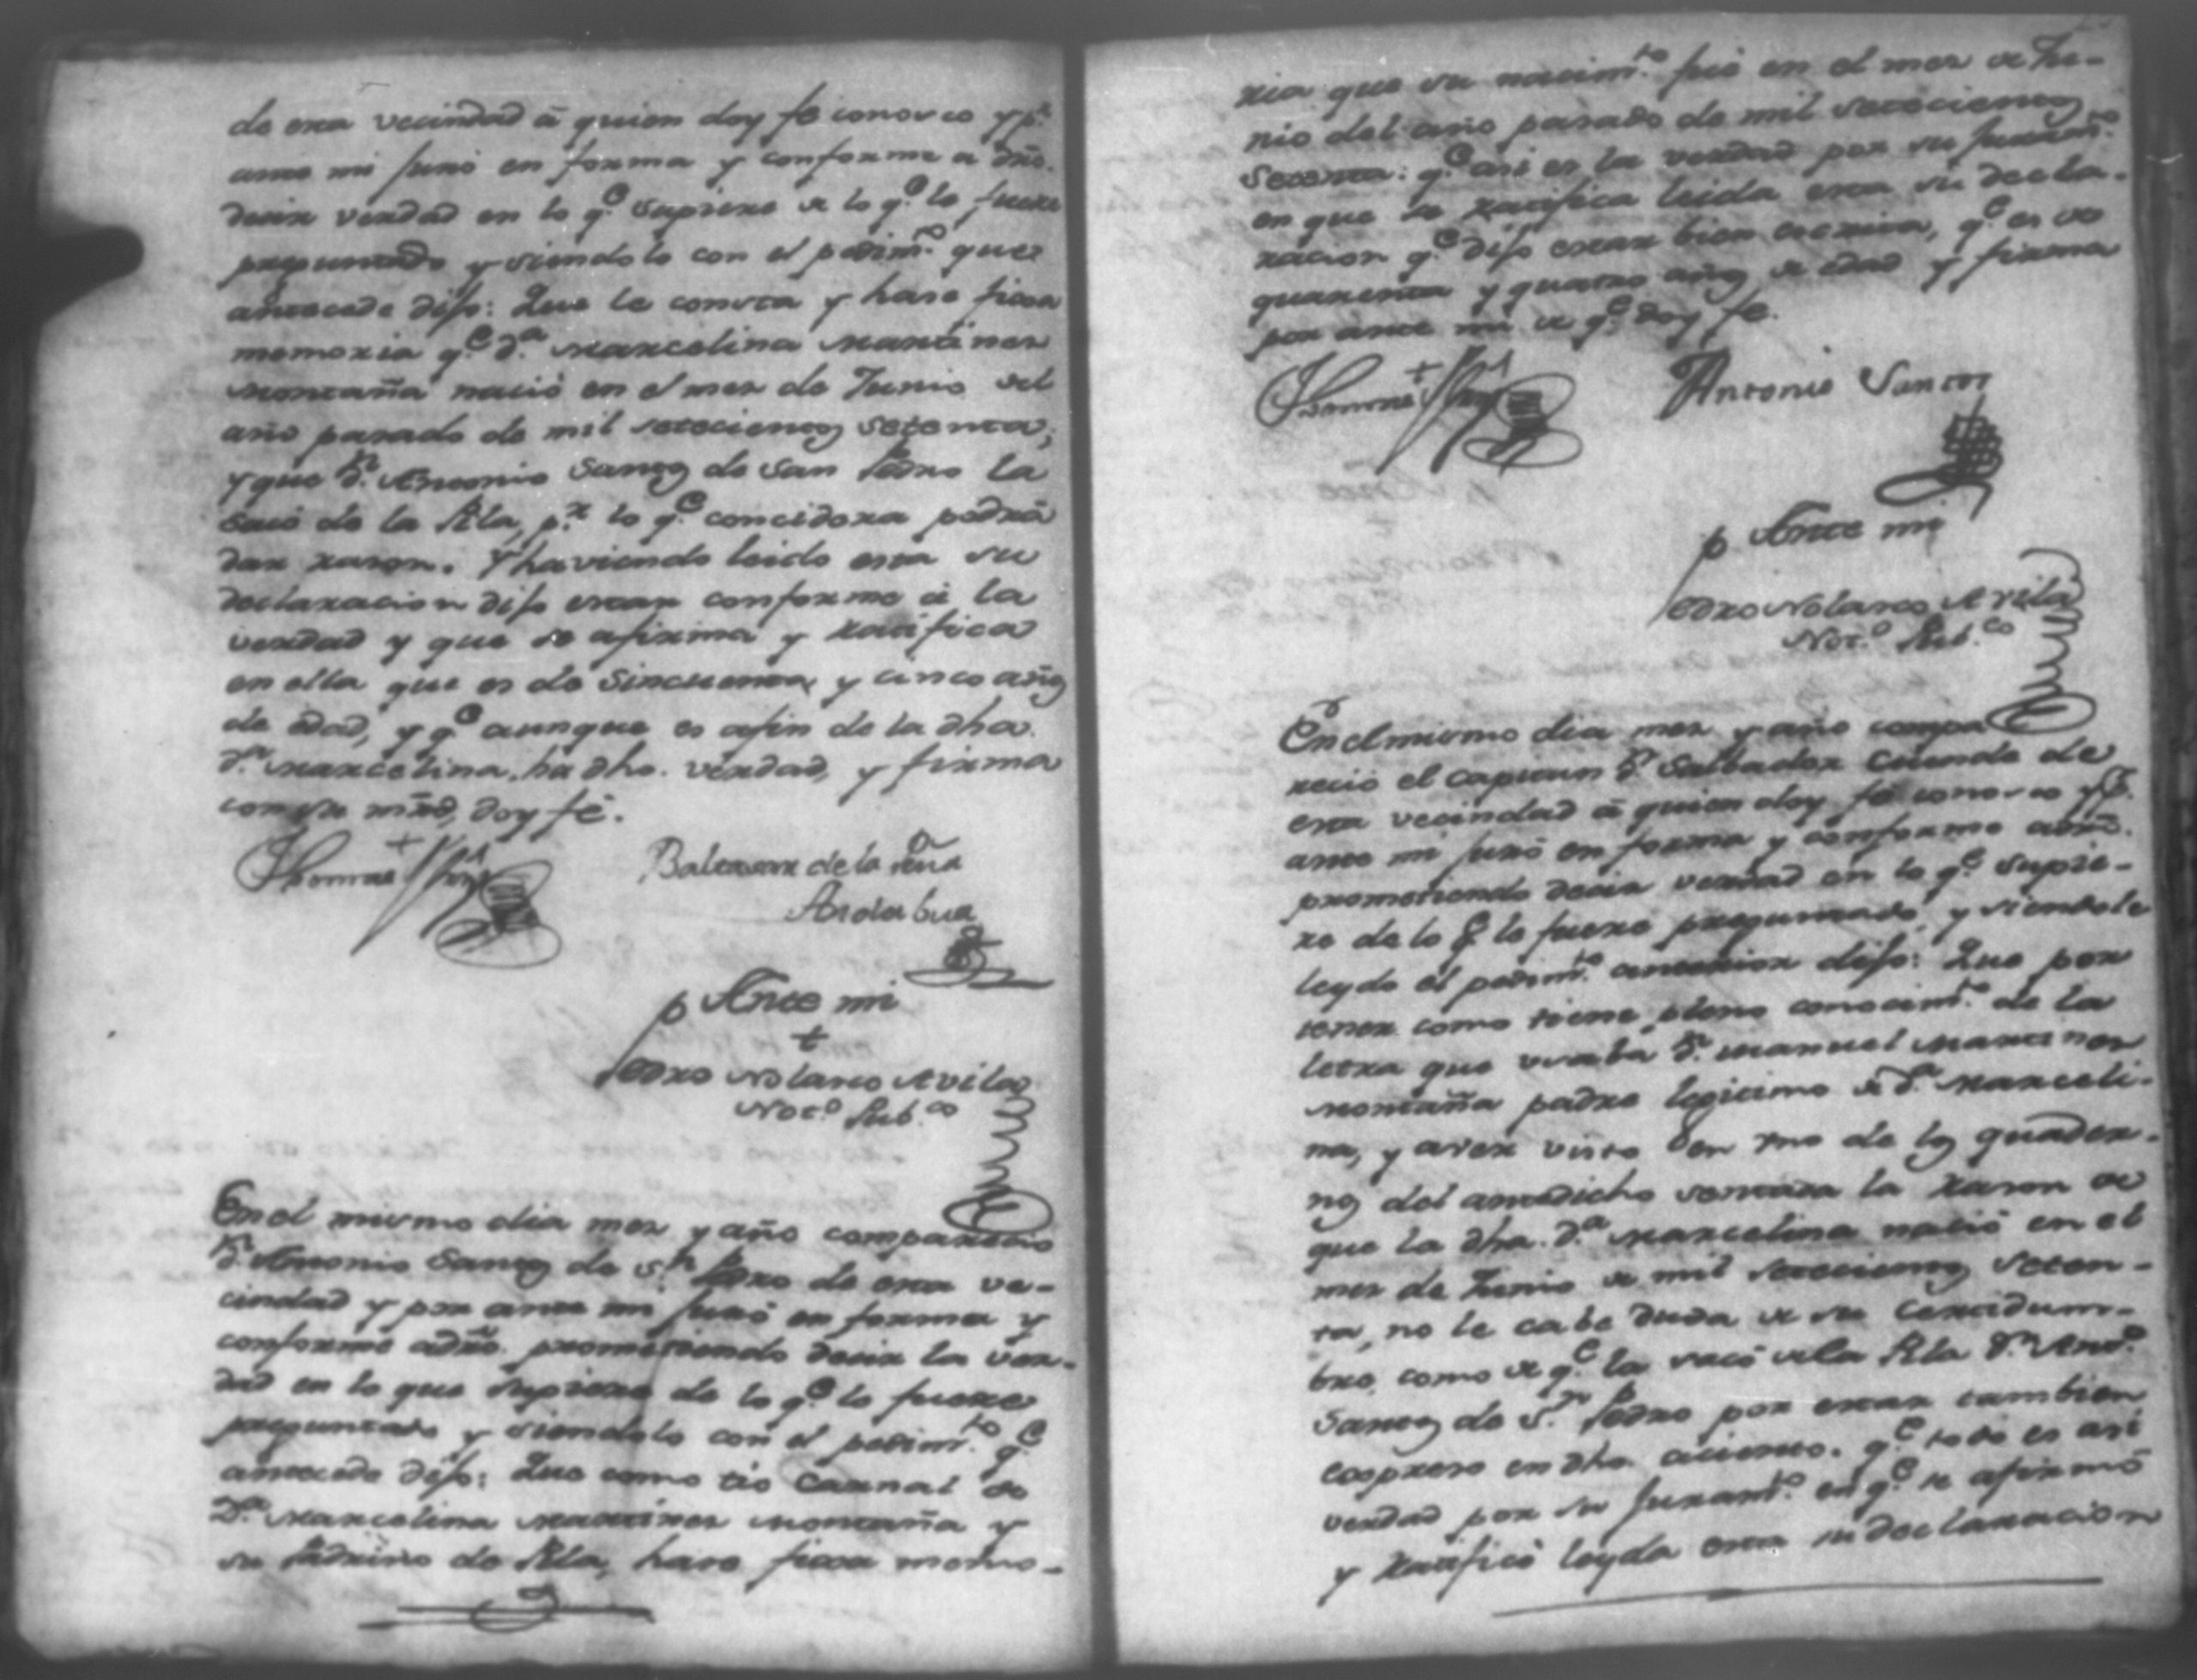 de esta vecindad â quien doy fe conosco y p.r
ante mi juró en forma y conforme a dro.
decir verdad en lo q.e supiere de lo q.e le fuere
preguntado y siendolo con el pedim.to que
antecede dijo: Que le consta y hace fixa
memoria q.e d.a Marcelina Martines
Montaña nació en el mes de Junio del
año pasado de mil setecientos setenta;
y que d.n Antonio Santos de San Pedro la
sacó de la Pila, p.r lo q.e concidera podrá
dar rason. Y haviendo leido esta su
declaracion dijo estar conforme â la
verdad y que se afirma y ratifica
en ella que es de sincuenta y cinco años
de edad, y q.e aunque es afin de la dha.
d.a Marcelina, ha dho. verdad, y firma
con su mrd, doy fé.
Baltasar de la Peña
p Ante mi
Pedro Nolasco Avila
Not.o Pub.co
En el mismo dia mes y año comparecio
d.n Antonio Santos de S.n Pedro de esta ve-
cindad y por ante mi juró en forma y
conforme a dro. prometiendo decir la ver-
dad en lo que supiere de lo q.e le fuere
preguntado y siendolo con el pedim.to q.e
antecede dijo: Que como tio carnal de
D.a Marcelina Martines Montaña y
su Padrino de Pila, hace fixa memo-
ria que su nacim.to fué en el mes de Ju-
nio del año pasado de mil setecientos
setenta: q.e asi es la verdad por su juram.to
en que se ratifica leida esta su decla-
racion q.e dijo estar bien escrita, q.e es de
quarenta y quatro años de edad y firma
por ante mi de q.e doy fe.
Antonio Santos
p Ante mi
Pedro Nolasco Avila
Not.o Pub.co
En el mismo dia mes y año compa
reció el capitan d.n Salbador Cuendo de
esta vecindad â quien doy fé conosco y p.r
ante mi juró en forma y conforme a dro.
prometiendo decir verdad en lo q.e supie-
re de lo q.e le fuere preguntado, y siendole
leydo el pedim.to anterior dijo: Que por
tener como tiene pleno conocim.to de la
letra que usaba d.n Manuel Martines
Montaña padre legitimo de d.a Marceli-
na, y aver visto en uno de los quader-
nos del antedicho sentada la rason de
que la dha. d.a Marcelina nació en el
mes de Junio de mil setecientos seten-
ta, no le cabe duda de su certidum-
bre, como de q.e la sacó de la Pila d.n Ant.o
Santos de S.n Pedro por estar tambien
expreso en dho. aciento. q.e todo es asi
verdad por su juram.to en q.e se afirmó
y ratificó leyda esta su declaracion